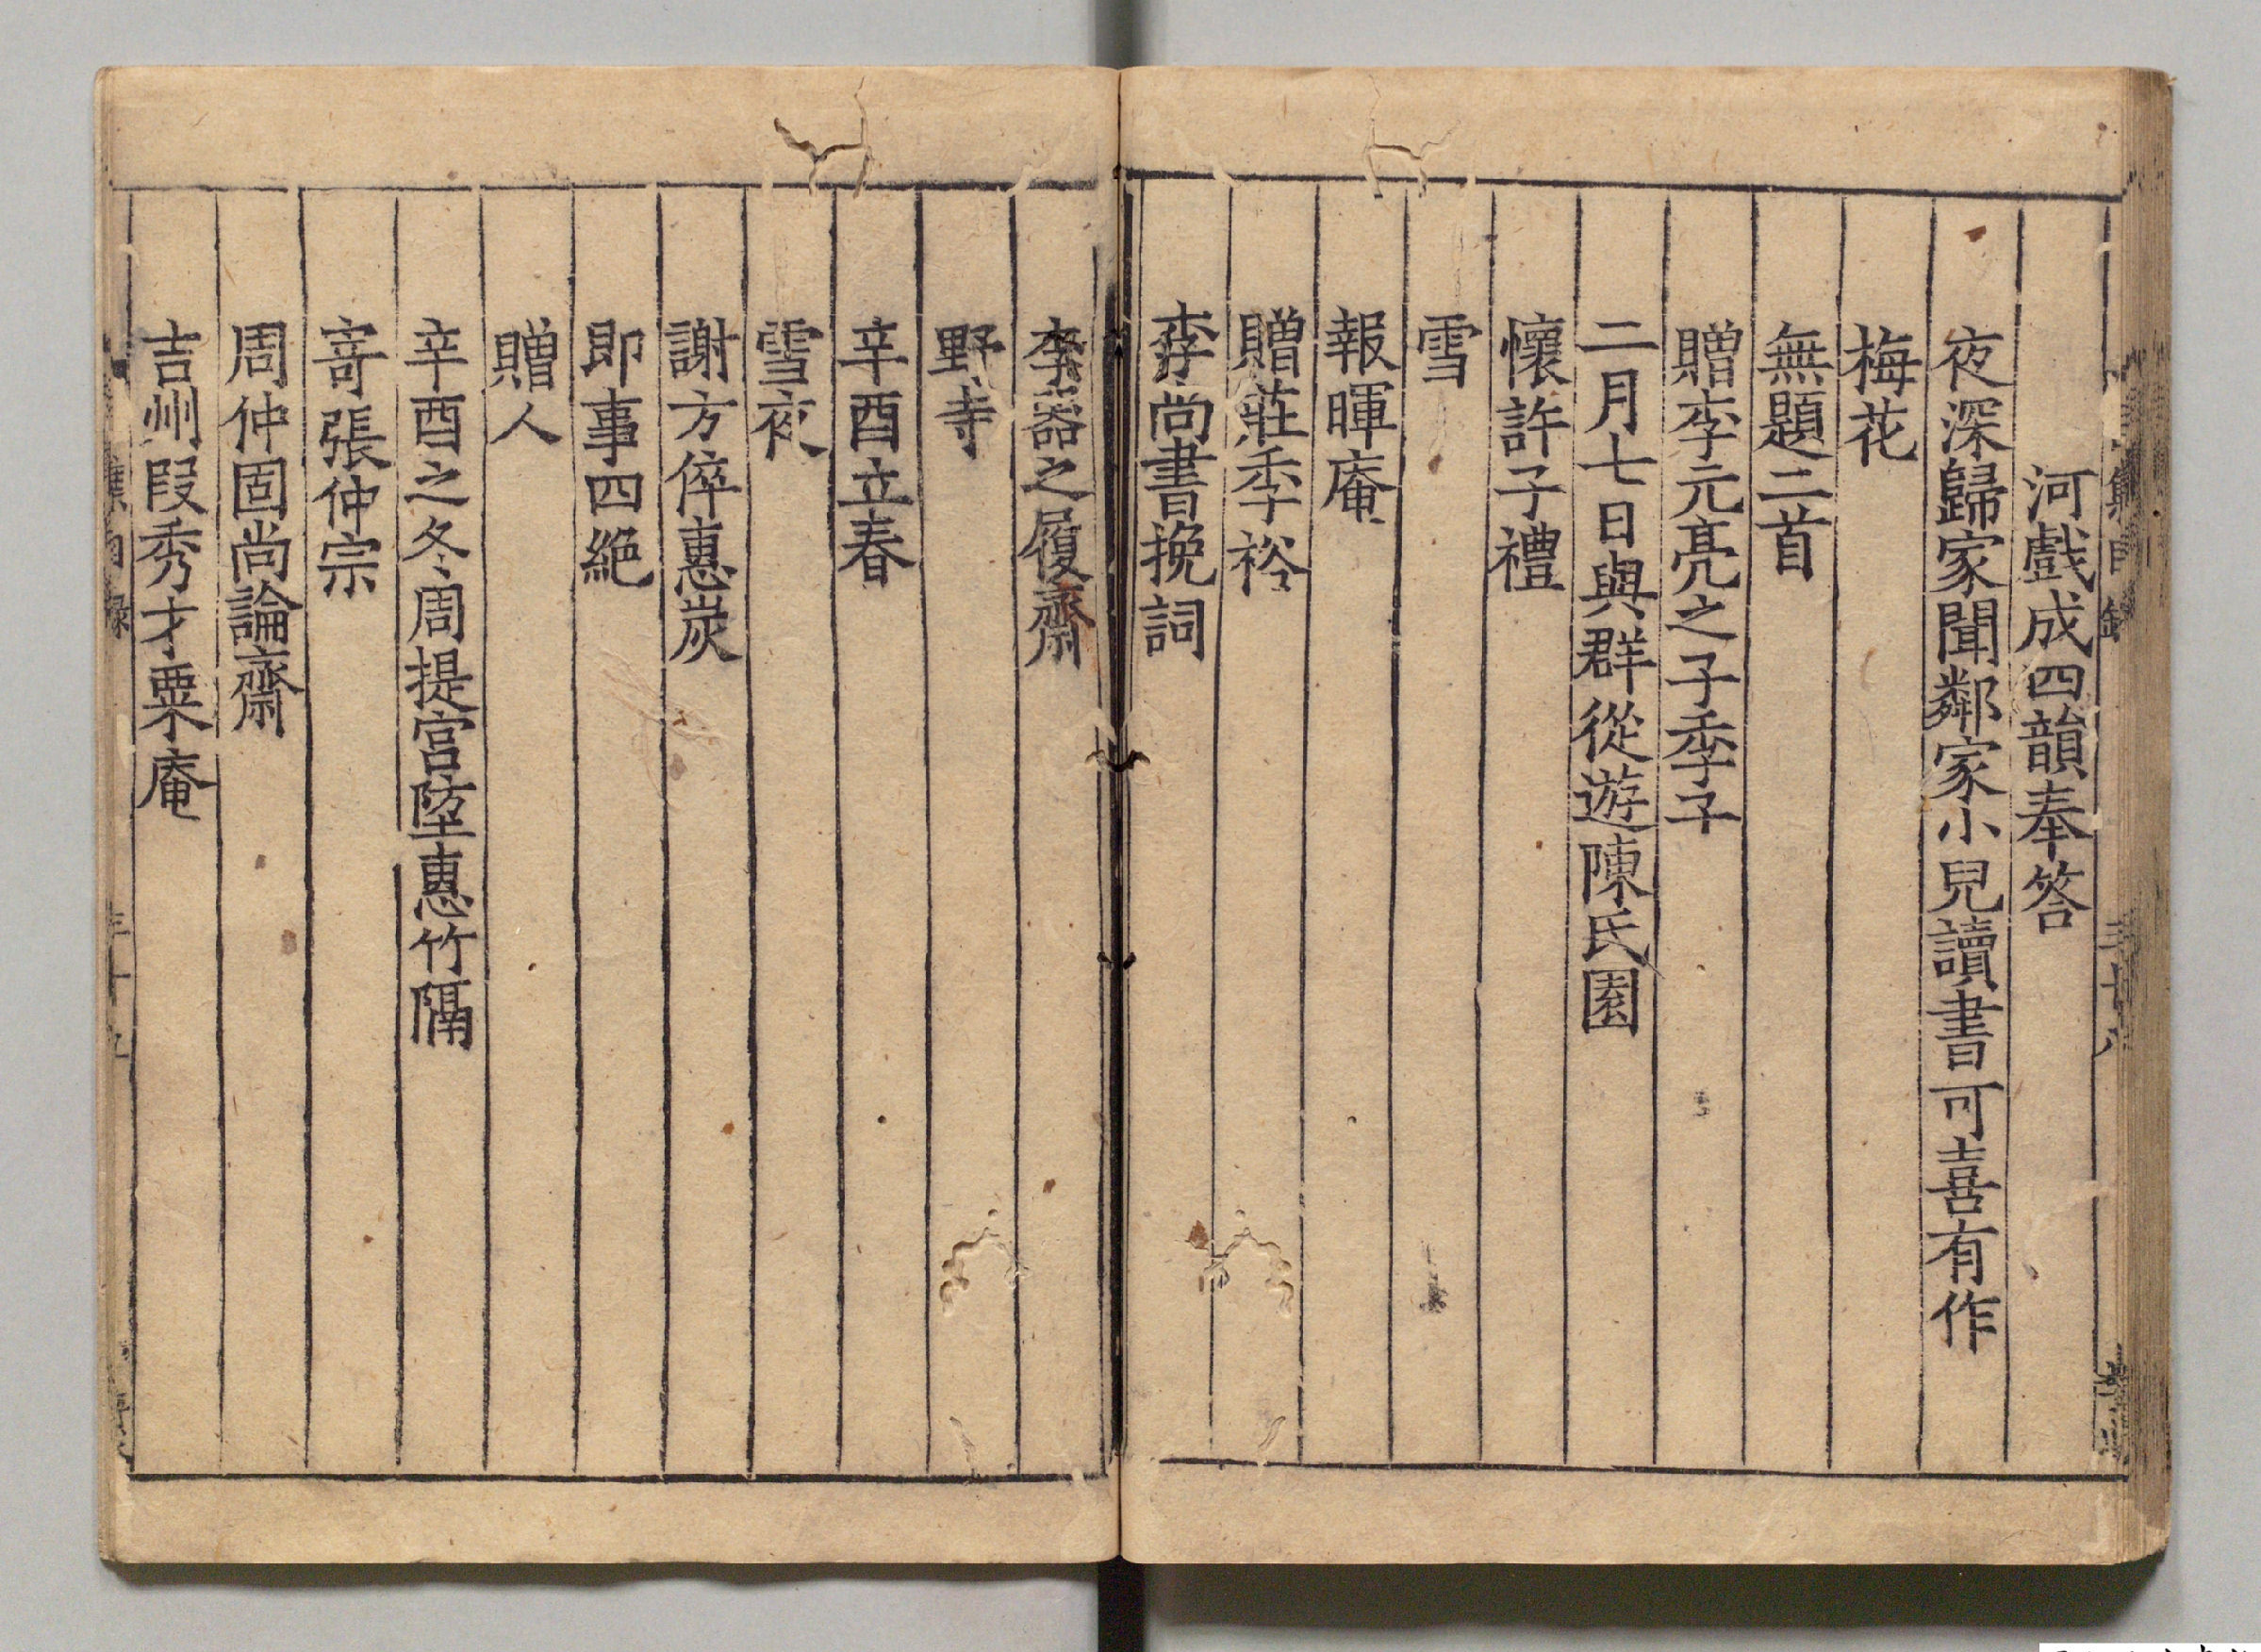 河戲成四韻奉答
夜深歸家聞鄰家小兒讀書可喜有作
梅花
無題二首
贈李元亮之子季子
二月七日與群從遊陳氏園
懷許子禮
雪
報暉庵
贈莊季裕
李尚書挽詞
李器之履齋
野寺
辛酉立春
雪夜
謝方倅惠炭
即事四絶
贈人
辛酉之冬周提宮陻惠竹隔
寄張仲宗
周仲固尚論齋
吉州段秀才粟庵